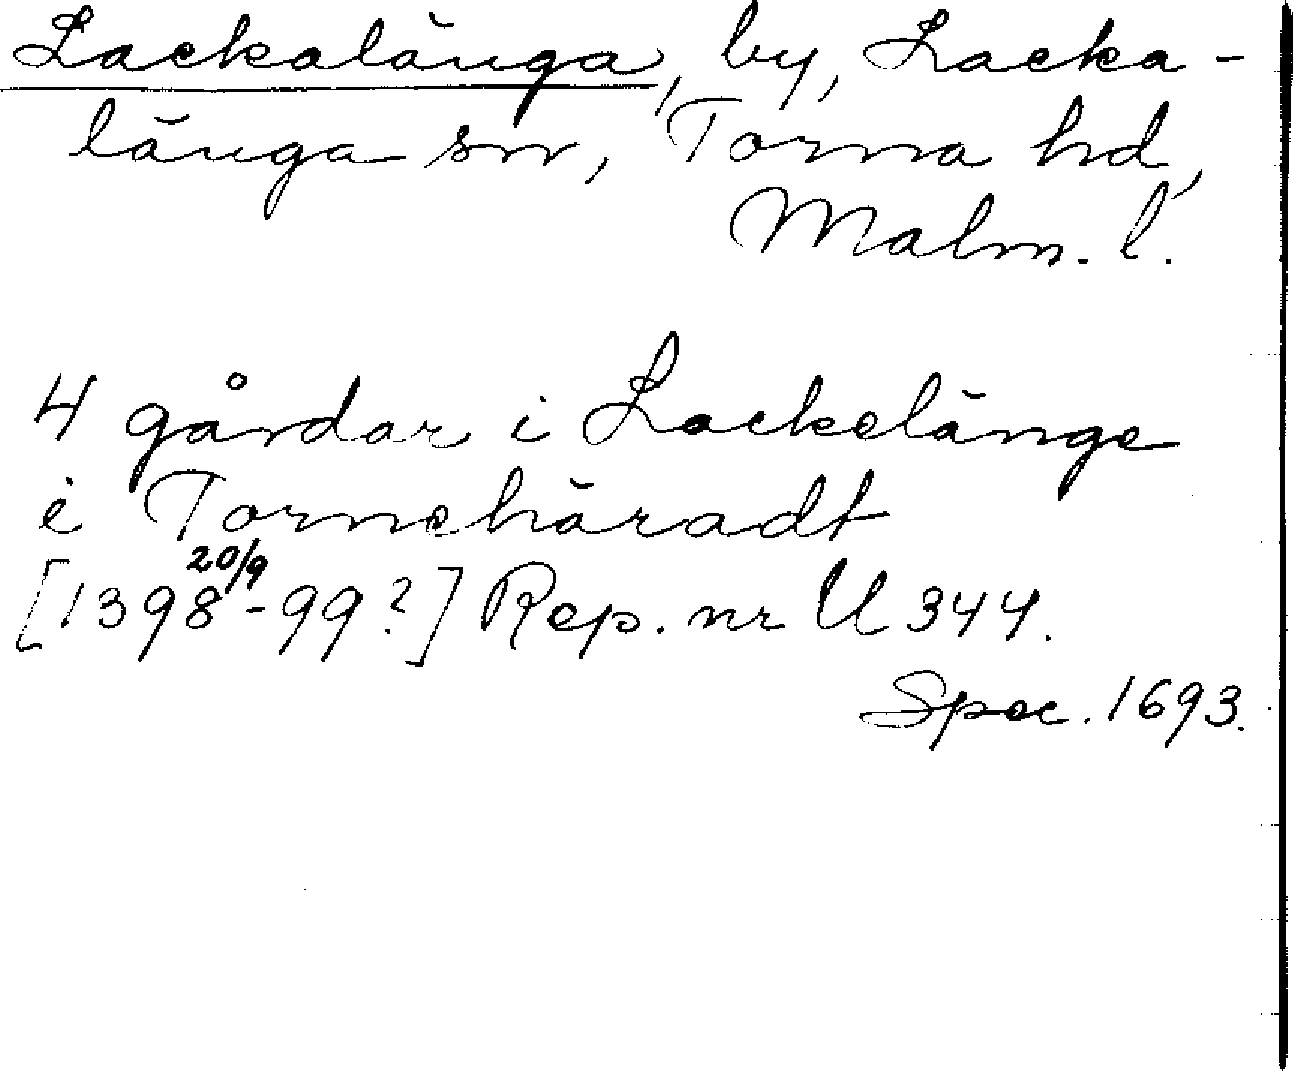 Lackalänga, by, Lacka-
länga sn, Torna hd,
Malm. l.
4 gårdar i Lackelänge
i Tornehäradt
[1398 20/9 - 99?] Rep. nr U 344.
Spec. 1693.